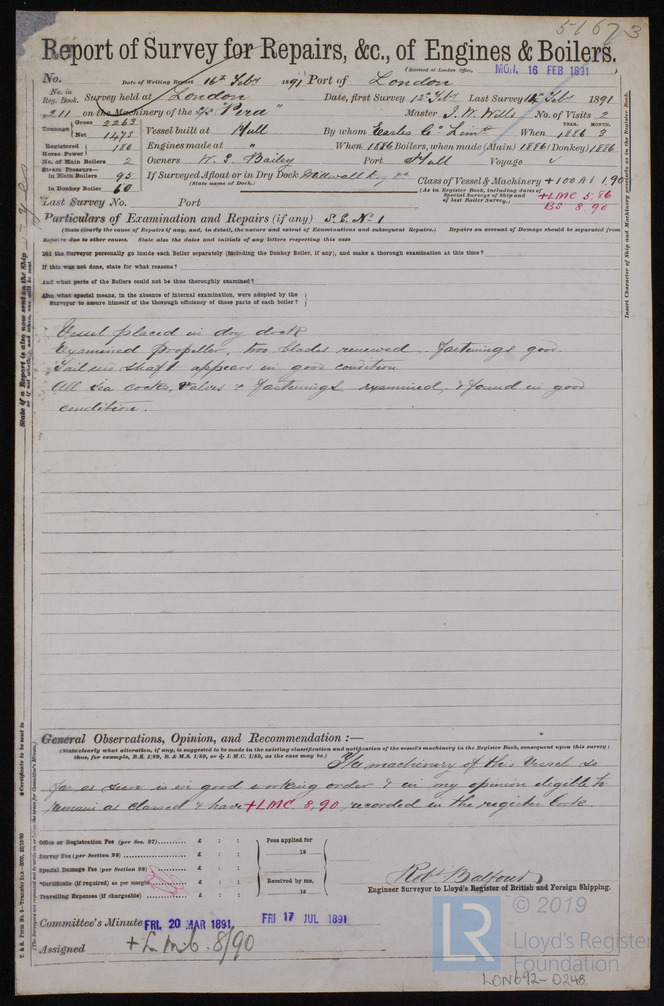 51673
Report of Survey for Repairs, &c., of Engines & Boilers.
(Received at London Office, MON. 16 FEB 1891
No. Date of Writing Report 16th Feby 1891 Port of London
No. in Reg. Book. Survey held at London Date, first Survey 13th Feby Last Survey 14th Feby 1891
211 on the Machinery of the S/S "Pera" Master J. W. Wills No. of Visits 2
Tonnage Gross 2263 Net 1473 Vessel built at Hull By whom Earles Co. Limd When YEAR. 1886 MONTH. 3
Registered Horse Power 180 Engines made at " When 1886 Boilers, when made (Main) 1886 (Donkey) 1886
No. of Main Boilers 2 Owners W. S. Bailey Port Hull Voyage
Steam Pressure— in Main Boilers 95 If Surveyed Afloat or in Dry Dock Millwall Dry Dk Class of Vessel & Machinery +100 A1 1,90
in Donkey Boiler 60 (State name of Dock.) (As in Register Book, including dates of Special Surveys of Ship and of last Boiler Survey.) +LMC 5.86
BS 8.90
Last Survey No. Port
Particulars of Examination and Repairs (if any) S.S. No 1
(State clearly the cause of Repairs if any, and, in detail, the nature and extent of Examinations and subsequent Repairs.) Repairs on account of Damage should be separated from
Repairs due to other causes. State also the dates and initials of any letters respecting this case
Did the Surveyor personally go inside each Boiler separately (including the Donkey Boiler, if any), and make a thorough examination at this time?
If this was not done, state for what reasons?
And what parts of the Boilers could not be thus thoroughly examined?
Also what special means, in the absence of internal examination, were adopted by the
Surveyor to assure himself of the thorough efficiency of those parts of each boiler?
Vessel placed in dry dock
Examined propeller, two blades renewed. fastenings good.
Tail in shaft appears in good condition
All sea cocks, valves & fastenings examined, & found in good
condition.
General Observations, Opinion, and Recommendation :—
(State clearly what alteration, if any, is suggested to be made in the existing classification and notification of the vessel's machinery in the Register Book, consequent upon this survey;
thus, for example, B.S. 1/89, B. & M.S. 1/89, or ✠ L.M.C. 1/89, as the case may be.)
The machinery of this Vessel so
far as seen is in good working order & in my opinion eligible to
remain as classed & have +LMC 8,90 recorded in the register book.
Office or Registration Fee (per Sec. 27).......... £ : : Fees applied for
Survey Fee (per Section 28).......... £ : : 18
Special Damage Fee (per Section 28).......... £ : :
*Certificate (if required) as per margin £ : : Received by me,
Travelling Expenses (if chargeable).......... £ : : 18
Robt Balfour
Engineer Surveyor to Lloyd's Register of British and Foreign Shipping.
Committee's Minute FRI. 20 MAR 1891 FRI 17 JUL 1891
Assigned + L M C 8/90
State if a Report is also now sent on the Ship
Yes
Insert Character of Ship and Machinery precisely as in the Register Book.
*Certificate to be sent to
LR © 2019
Lloyd's Register
Foundation
LON692-0248